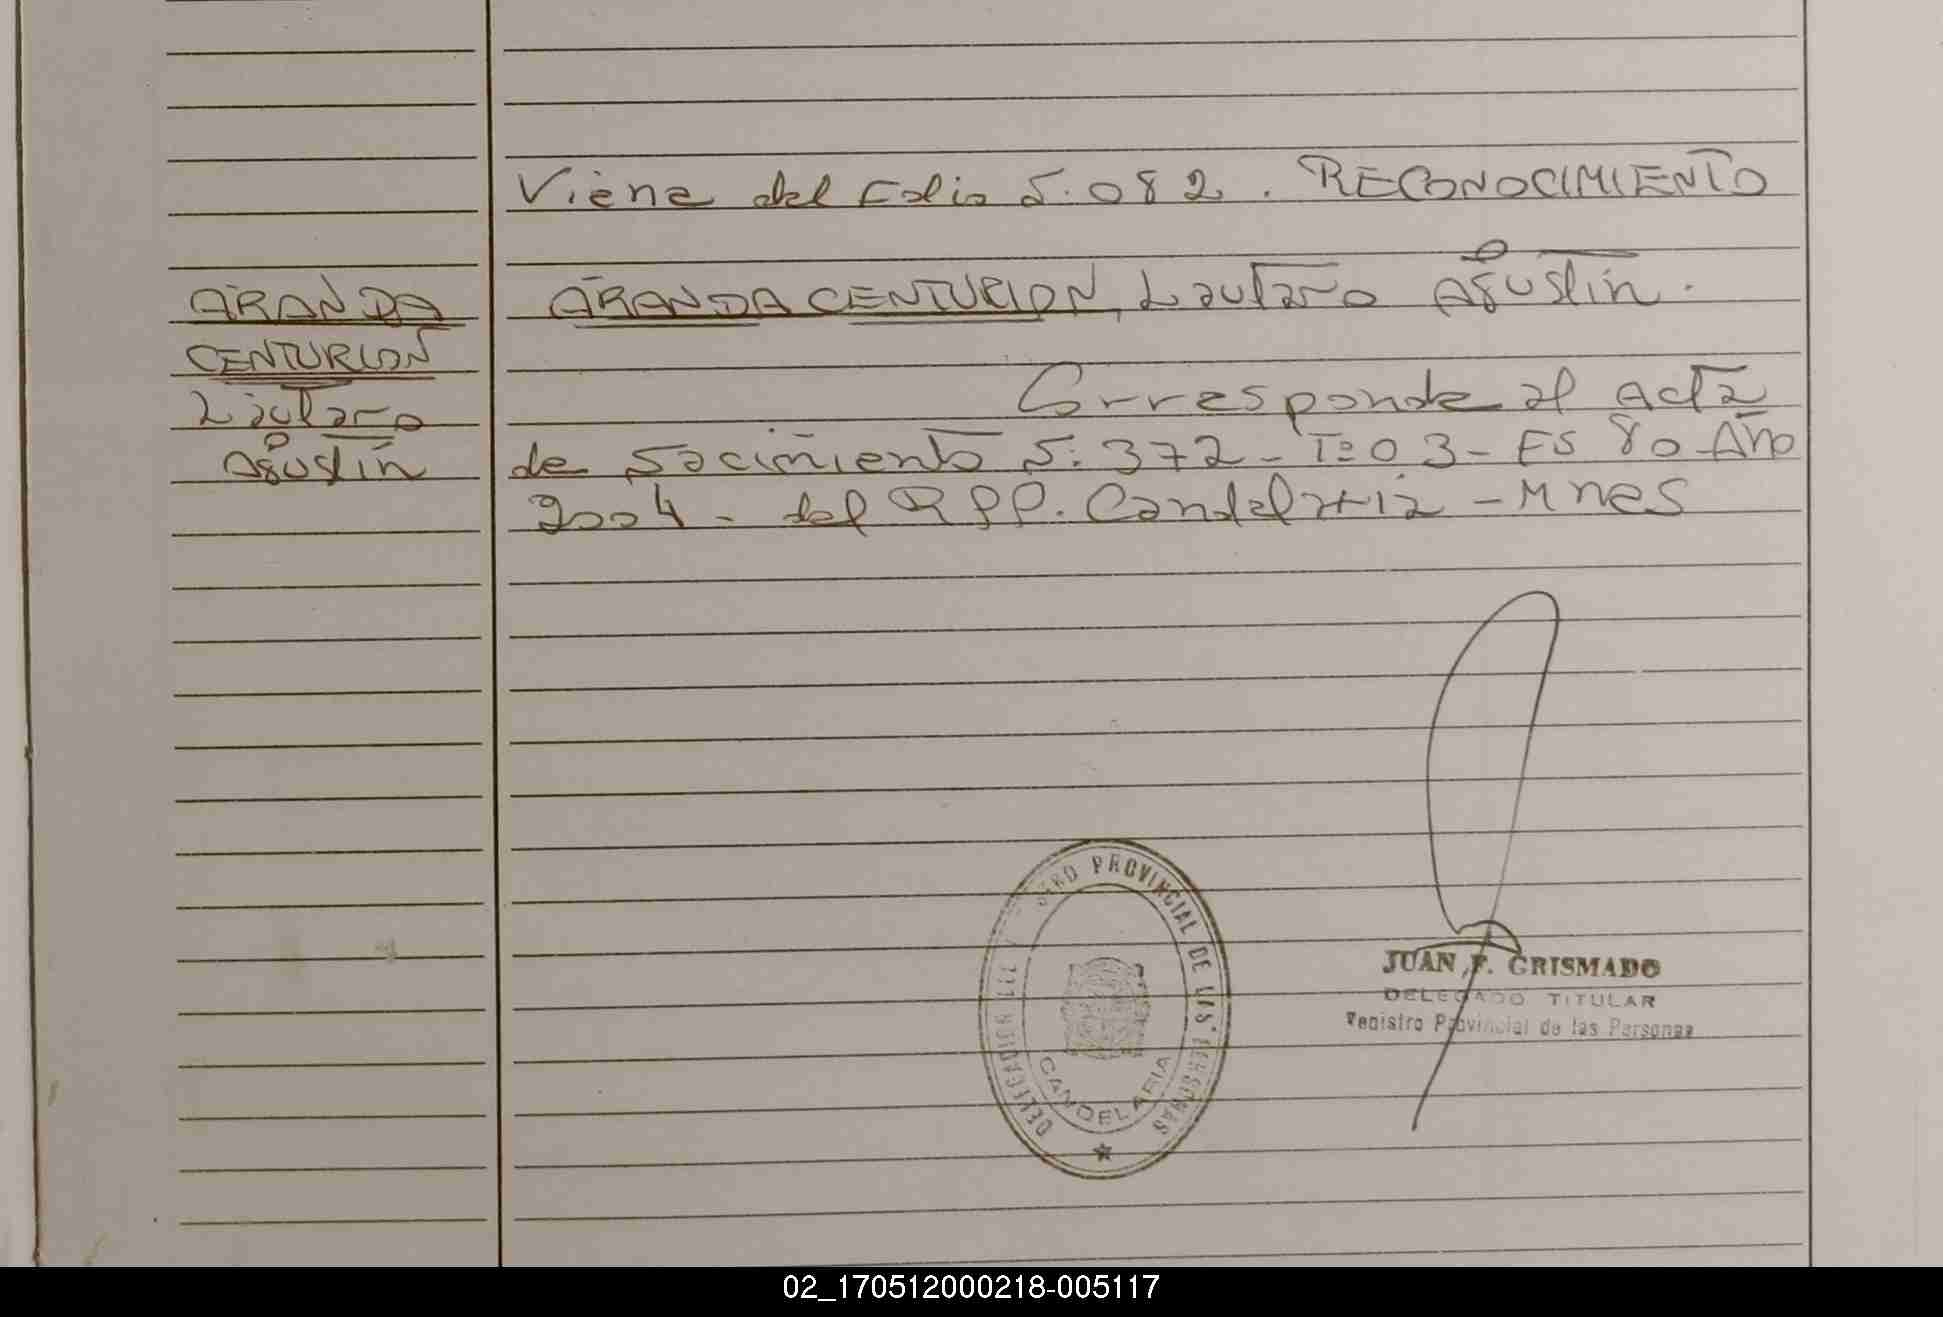 Viene del Folio 5.082. RECONOCIMIENTO
ARANDA
CENTURION
Lautaro
Agustín
ARANDA CENTURION, Lautaro Agustín.
Corresponde al Acta
de Nacimiento 5: 372 - Tº 03 - FS 80 Año
2004 - del RPP. Candelaria - Mnes
PROVINCIAL DE LAS PERSONAS
DELEGACION
CANDELARIA
JUAN F. GRISMADO
DELEGADO TITULAR
Registro Provincial de las Personas
02_170512000218-005117